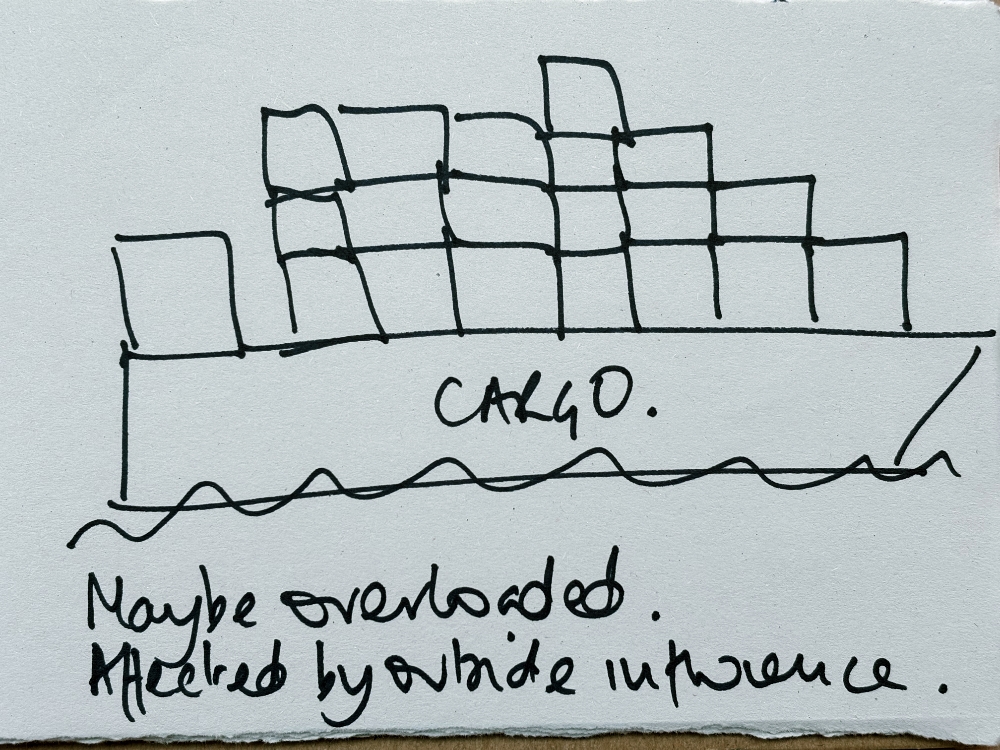 CARGO.
Maybe overloaded.
Affected by outside influence.